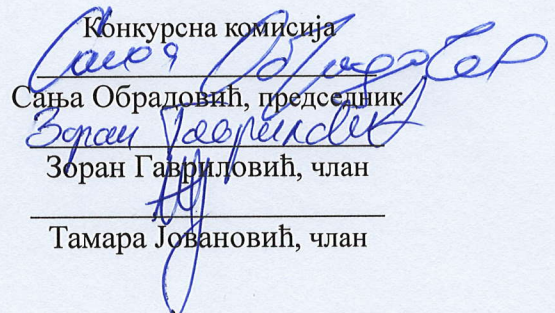 Конкурсна комисија
Сања Обрадовић
Сања Обрадовић, председник
Зоран Гавриловић
Зоран Гавриловић, члан
Тамара Јовановић, члан